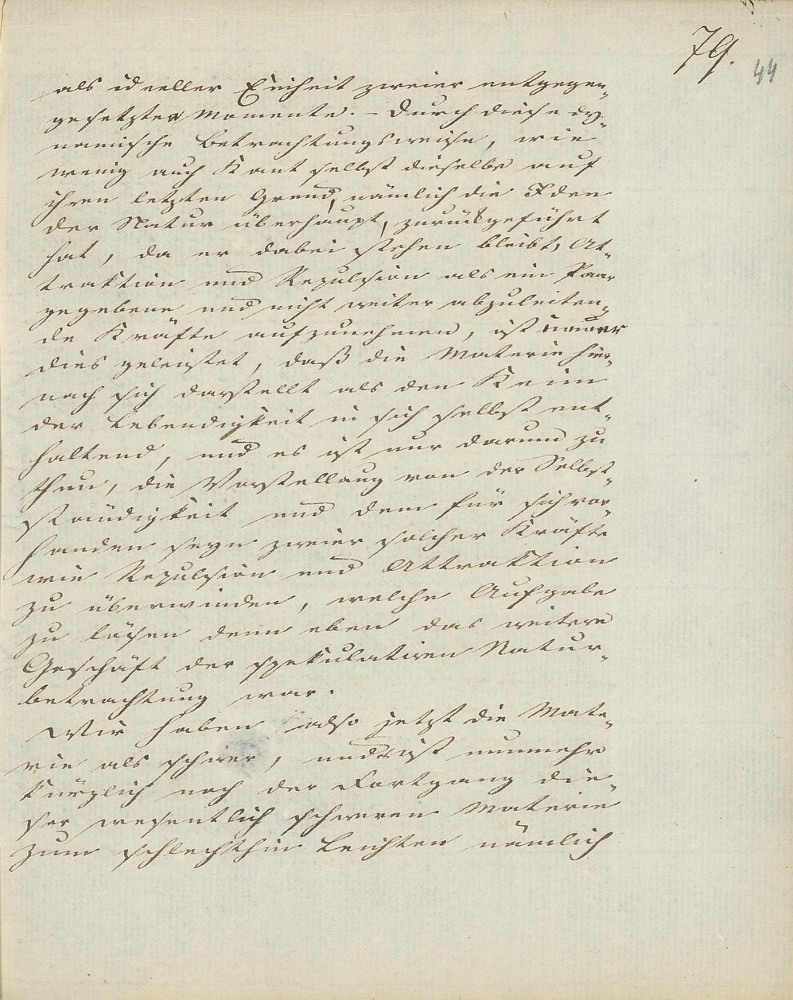 79.
44
als ideeller Einheit zweier entgegen-
gesetzter Momente. – Durch diese dy-
namische Betrachtungsweise, wie
wenig auch Kant selbst dieselbe auf
ihren letzten Grund, nämlich die Idee
der Natur überhaupt, zurückgeführt
hat, da er dabei stehen bleibt, At-
traktion und Repulsion als ein Paar
gegebene und nicht weiter abzuleiten-
de Kräfte aufzunehmen, ist immer
dies geleistet, daß die Materie hier-
nach sich darstellt als den Keim
der Lebendigkeit in sich selbst ent-
haltend, und es ist nur darum zu
thun, die Vorstellung von der Selbst-
ständigkeit und dem für sich vor-
handen seyn zweier solcher Kräfte
wie Repulsion und Attraktion
zu überwinden, welche Aufgabe
zu lösen denn eben das weitere
Geschäft der spekulativen Natur-
betrachtung war.
Wir haben also jetzt die Mate-
rie als schwer, und es ist nunmehr
kürzlich noch der Fortgang die-
ser wesentlich schweren Materie
zum schlechthin Leichten nämlich